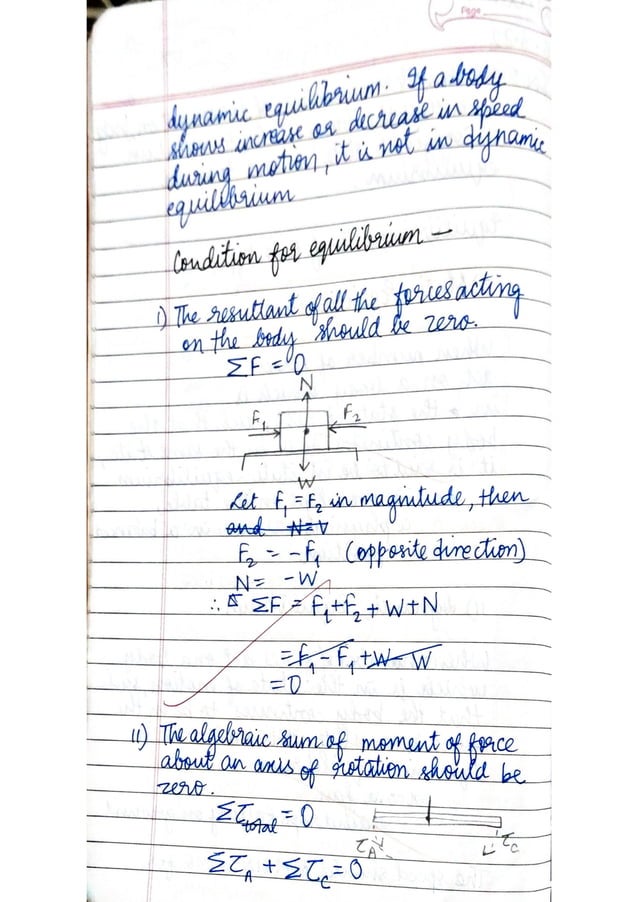 Page
dynamic equilibrium. If a body
shows increase or decrease in speed
during motion, it is not in dynamic
equilibrium
Condition for equilibrium —
i) The resultant of all the forces acting
on the body should be zero.
ΣF = 0
N
F₁ F₂
W
Let F₁ = F₂ in magnitude, then
and N=V
F₂ = -F₁ (opposite direction)
N = -W
∴ ΣF = F₁+F₂ + W+N
= F₁ - F₁ + W - W
= 0
ii) The algebraic sum of moment of force
about an axis of rotation should be
zero.
Στtotal = 0
τA τC
ΣτA + ΣτC = 0